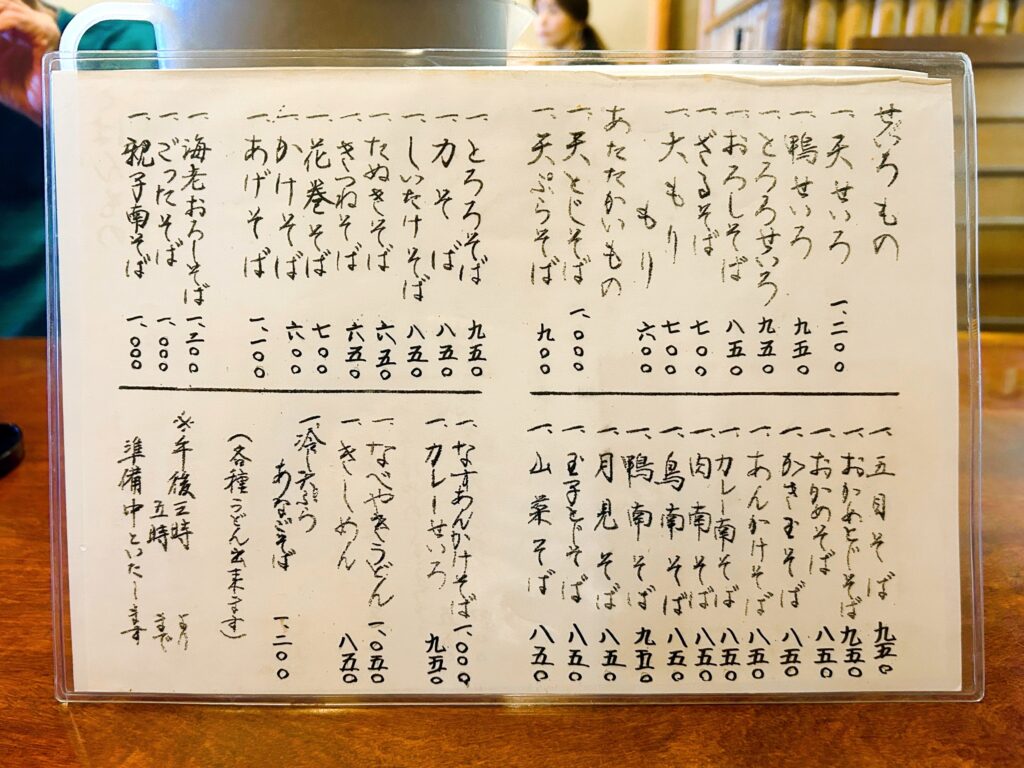 せいろもの
一、天せいろ 一、二〇〇
一、鴨せいろ 九五〇
一、とろろせいろ 九五〇
一、おろしそば 八五〇
一、ざるそば 七〇〇
一、大もり 七〇〇
一、もり 六〇〇
あたたかいもの
一、天とじそば 一、〇〇〇
一、天ぷらそば 九〇〇
一、とろろそば 九五〇
一、力そば 八五〇
一、しいたけそば 八五〇
一、たぬきそば 六五〇
一、きつねそば 六五〇
一、花巻そば 七〇〇
一、かけそば 六〇〇
一、あげそば 一、一〇〇
一、海老おろしそば 一、三〇〇
一、ごったそば 一、〇〇〇
一、親子南そば 一、〇〇〇
一、五目そば 九五〇
一、おかめとじそば 九五〇
一、おかめそば 八五〇
一、かき玉そば 八五〇
一、あんかけそば 八五〇
一、カレー南そば 八五〇
一、肉南そば 八五〇
一、鳥南そば 八五〇
一、鴨南そば 九五〇
一、月見そば 八五〇
一、玉子とじそば 八五〇
一、山菜そば 八五〇
一、なすあんかけそば 一、〇〇〇
一、カレーせいろ 九五〇
一、なべやきうどん 一、〇五〇
一、きしめん 八五〇
一、冷し天ぷら
あなごそば 一、二〇〇
(各種うどん出来ます)
※午後三時より
五時まで
準備中といたします